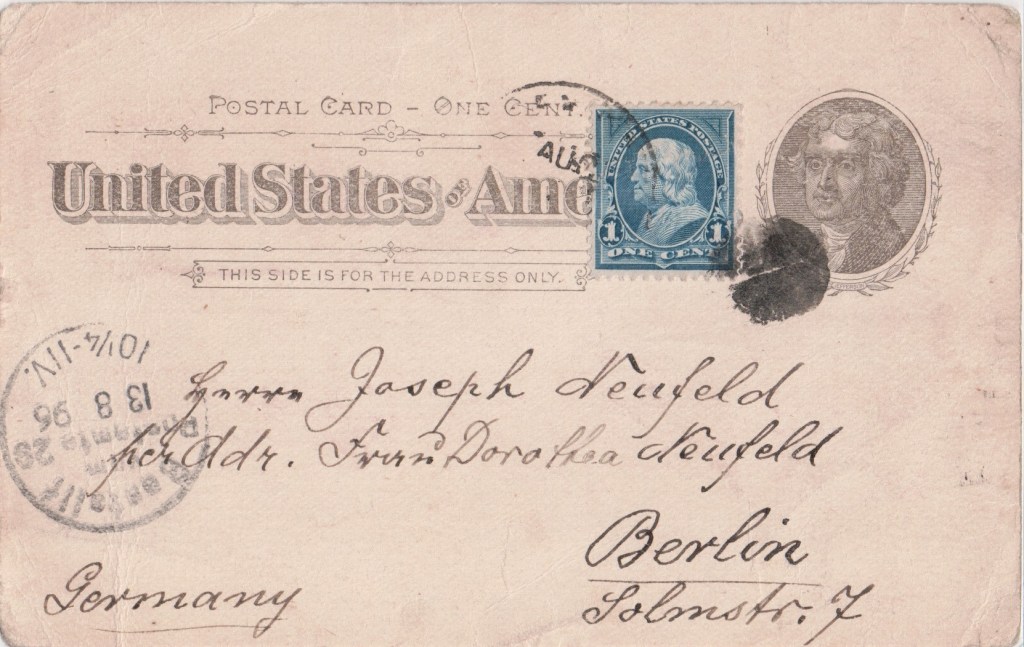 POSTAL CARD – ONE CENT.
United States of Ame
THIS SIDE IS FOR THE ADDRESS ONLY.
AUG
UNITED STATES POSTAGE
1 1
ONE CENT
Herrn Joseph Neufeld
per Adr. Frau Dorothea Neufeld
Berlin
Solmstr. 7
Germany
Bestellt
vom
Postamte 29
13 8 96
10¼-11V.